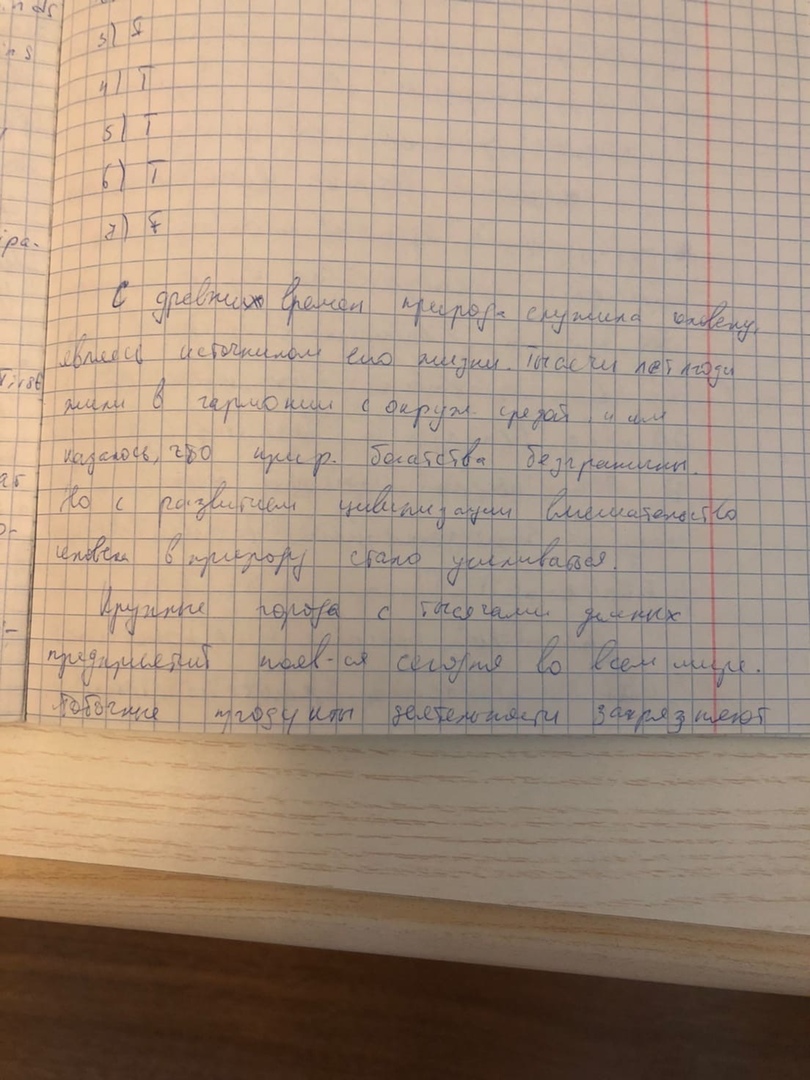 3) F
4) T
5) T
6) T
7) F
С древних времен природа служила человеку,
являясь источником его жизни. Тысячи лет люди
жили в гармонии с окруж. средой, и им
казалось, что прир. богатства безграничны.
Но с развитием цивилизации вмешательство
человека в природу стало усиливаться.
Крупные города с тысячами дымных
предприятий появ-ся сегодня во всем мире.
Побочные продукты деятельности загрязняют